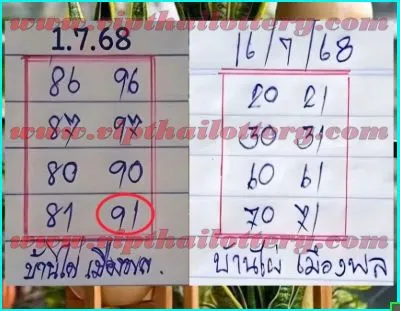 1.7.68
86 96
87 97
80 90
81 91
บ้านไผ่ เมืองพล.
16/7/68
20 21
30 31
60 61
70 71
บ้านไผ่ เมืองพล
www.vipthailottery.com
www.vipthailottery.com
www.vipthailottery.com
www.vipthailottery.com